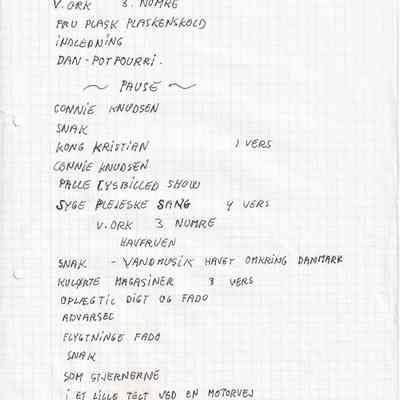 V. ORK 3. NUMRE
FRU PLASK PLASKENSKOLD
INDLEDNING
DAN-POTPOURRI.
~ PAUSE ~
CONNIE KNUDSEN
SNAK
KONG KRISTIAN 1 VERS
CONNIE KNUDSEN
PALLE LYSBILLED SHOW
SYGE PLEJESKE SANG 4 VERS
V. ORK 3 NUMRE
HAVFRUEN
SNAK - VANDMUSIK HAVET OMKRING DANMARK
KULØRTE MAGASINER 3 VERS
OPLÆG TIL DIGT OG FADO
ADVARSEL
FLYGTNINGE FADO
SNAK
SOM STJERNERNE
I ET LILLE TELT VED EN MOTORVEJ